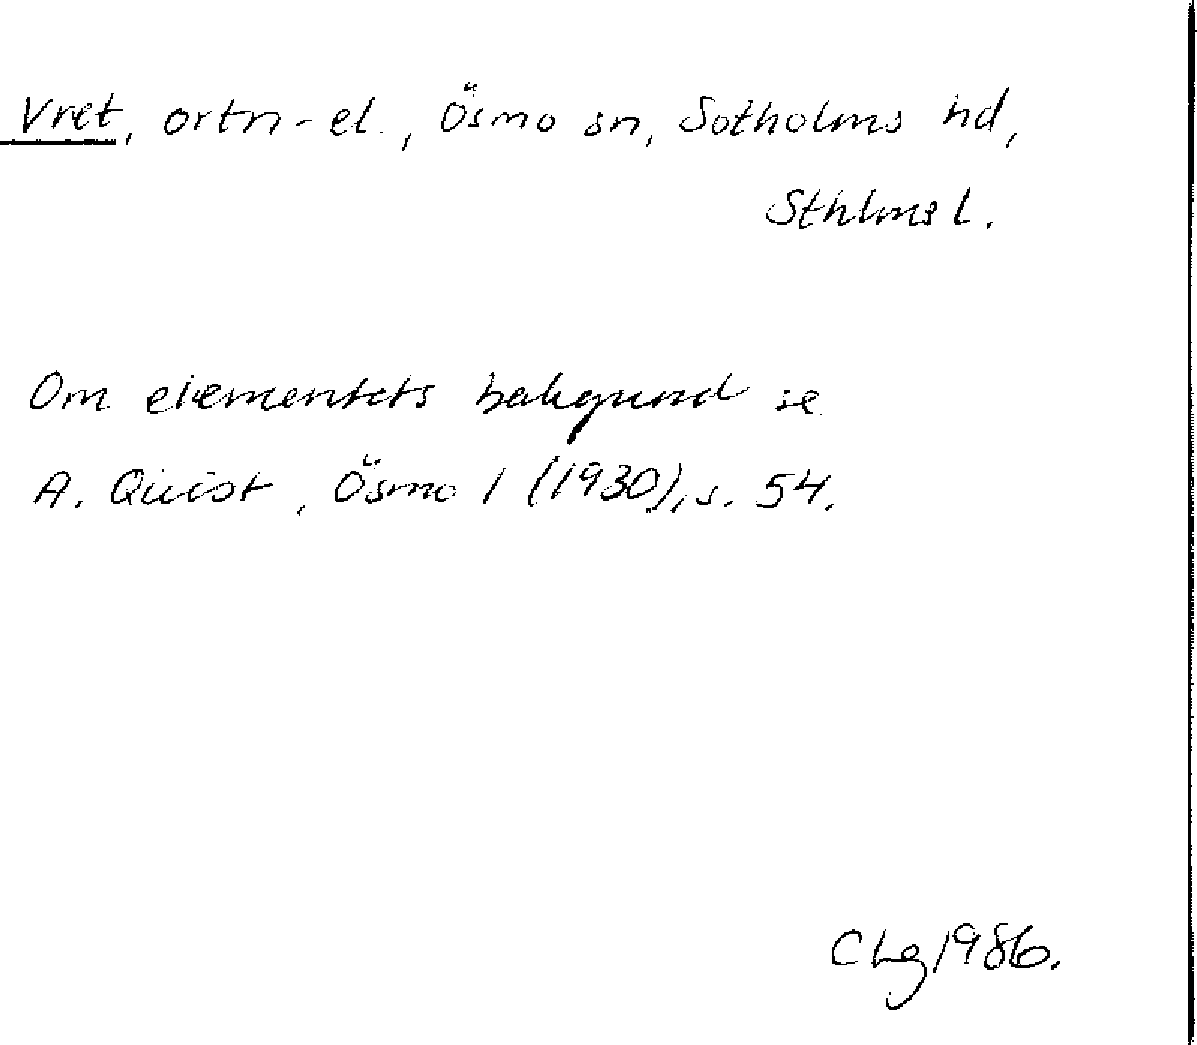 Vret, ortn-el., Ösmo sn, Sotholms hd,
Sthlms l.
Om elementets bakgrund se
A. Quist, Ösmo 1 (1930), s. 54.
CLg 1986.